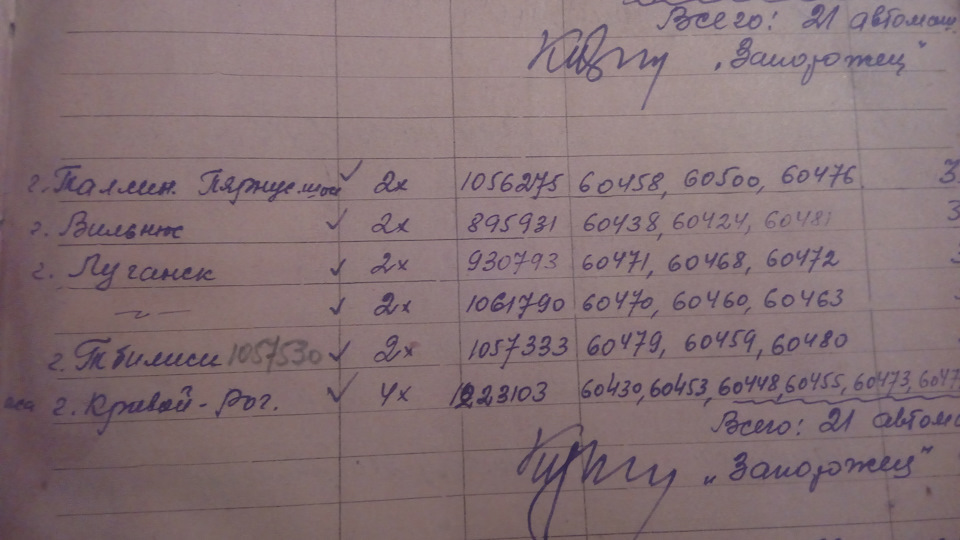 Всего: 21 автомаш.
„Запорожец"
г. Таллин. Пярнус. шоссе 2х 1056275 60458, 60500, 60476 3
г. Вильнюс 2х 895931 60438, 60424, 60481 3
г. Луганск 2х 930793 60471, 60468, 60472
-"- 2х 1061790 60470, 60460, 60463
г. Тбилиси 1057530 2х 1057333 60479, 60459, 60480
г. Кривой-Рог. 4х 1223103 60430, 60453, 60448, 60455, 60473, 6047
Всего: 21 автом
„Запорожец"